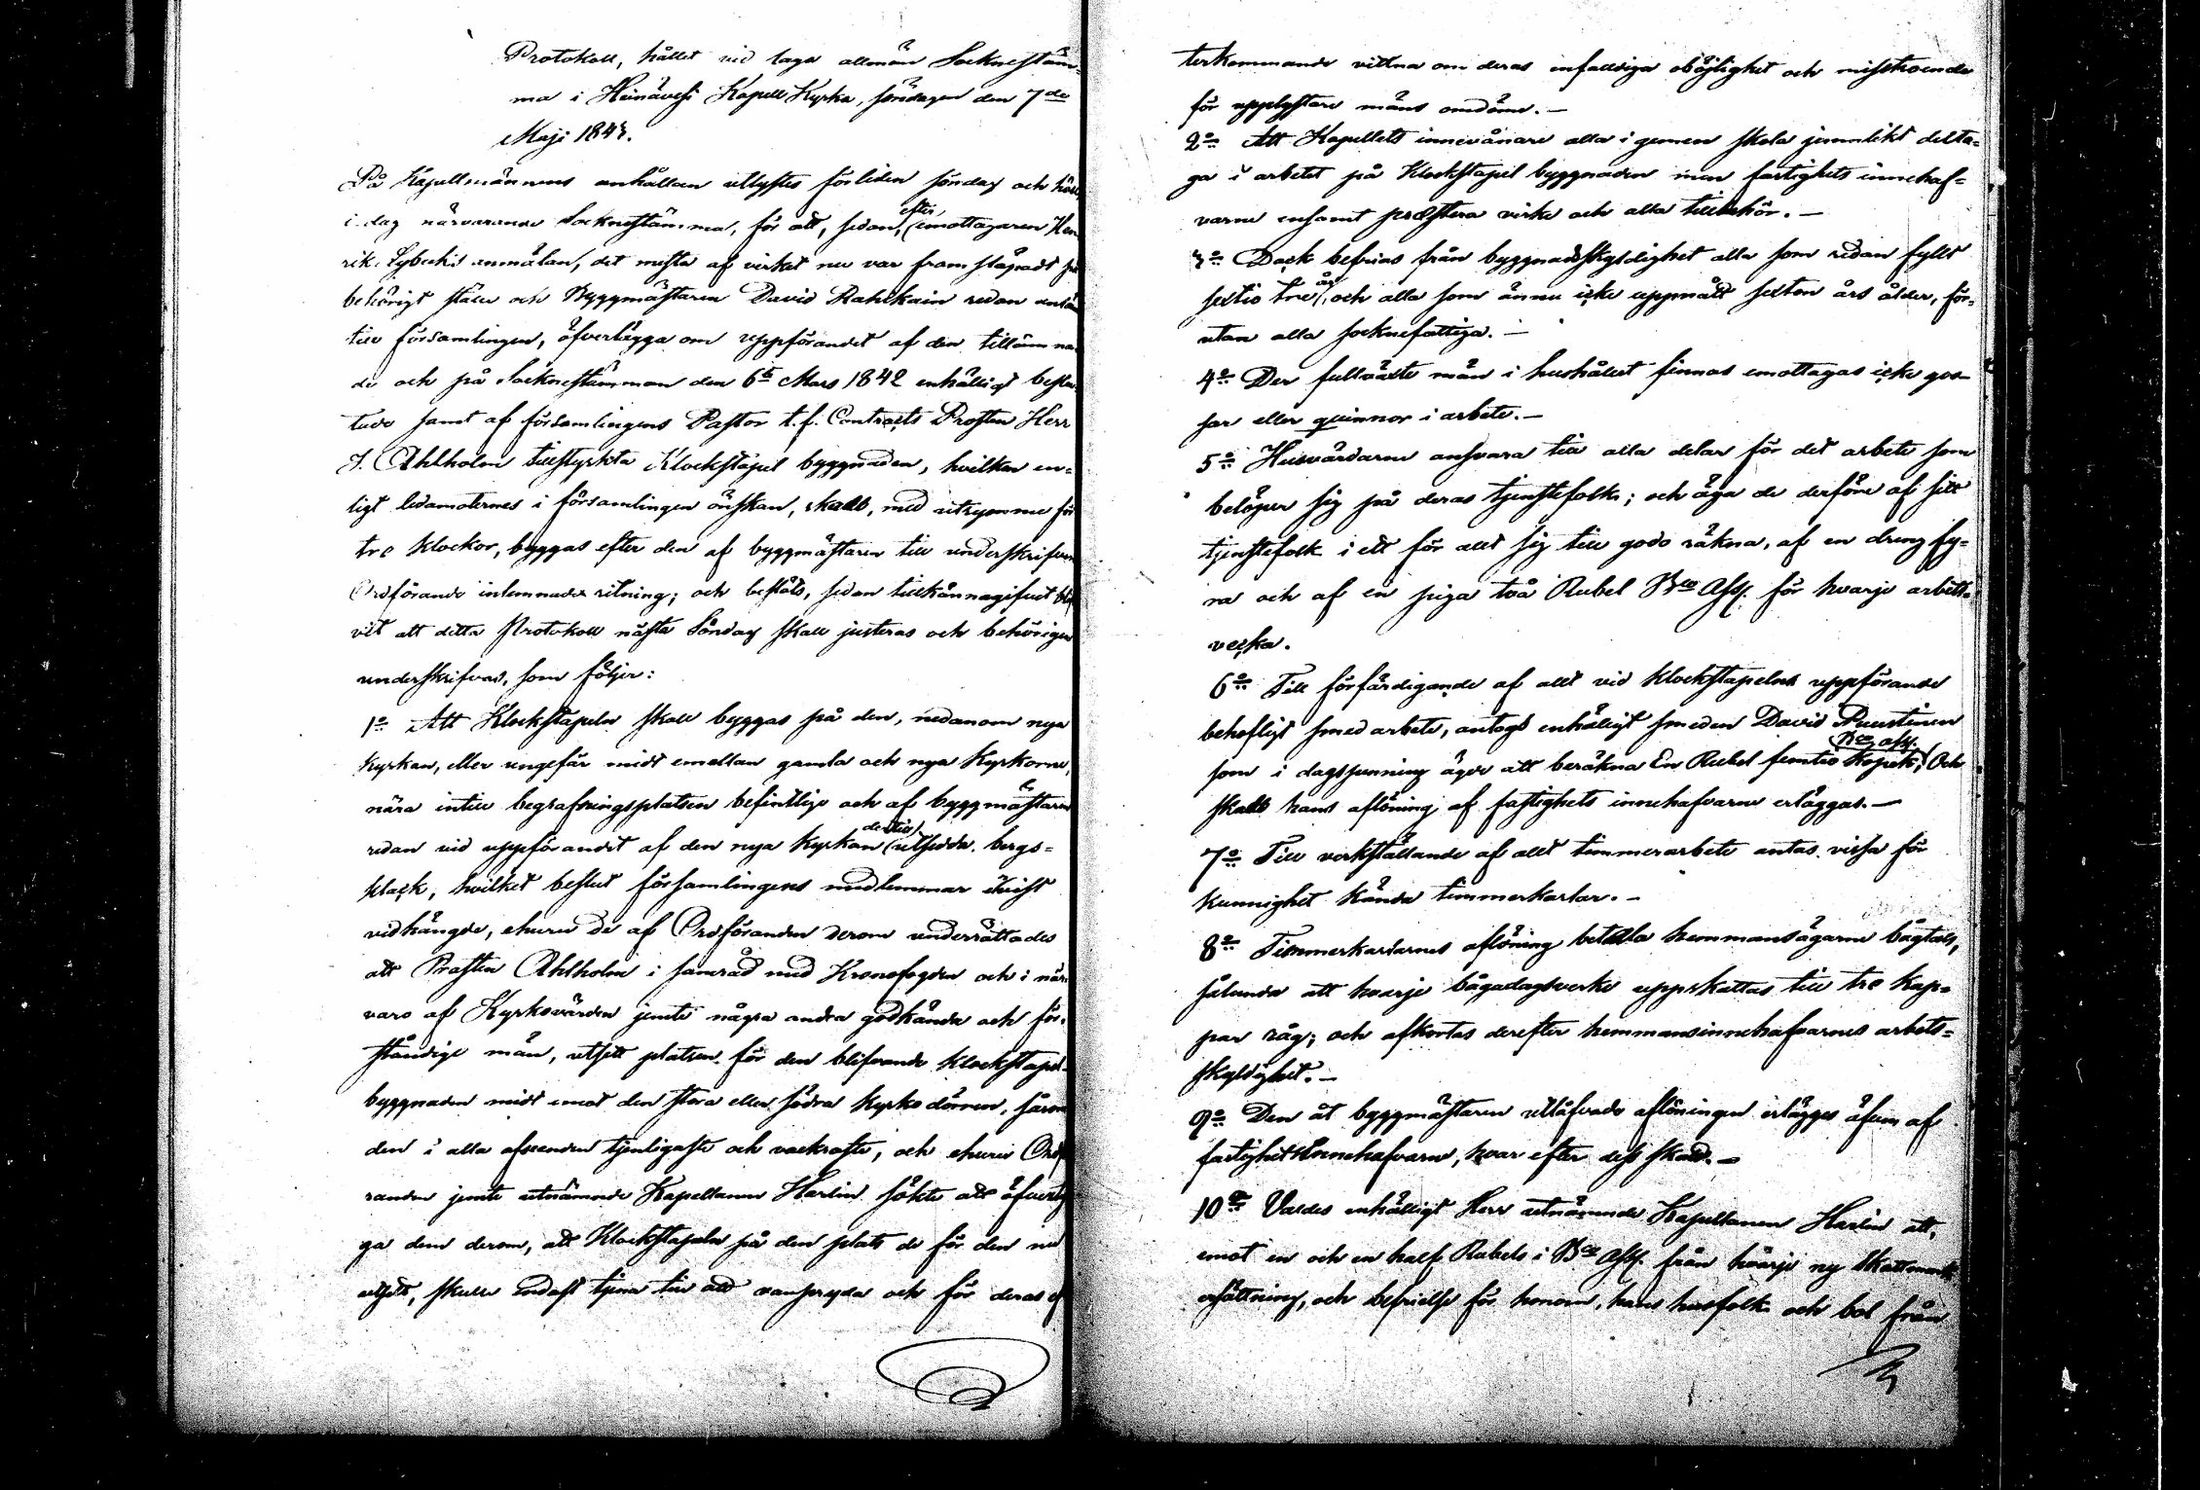 Protokoll, hållet vid laga allmän Sockneståm-
ma i Heinävesi Kapell Kyrka, söndagen den 7de
Maji 1843.
På Kapellmännens anhållan utlystes förliden söndag och hölls
i dag närvarande Socknestämma, för att, sedan, efter, emottagaren Hen
rik Lybecks anmälan, det mesta af virket nu var framsläpadt på
behörigt ställe och Byggmästaren David Rahikain redan anländt
till församlingen, öfverlägga om uppförandet af den tillämna-
de och på Socknestämman den 6te Mars 1842 enhälligt beslu
tade samt af församlingens Pastor t.f. Contracts Prosten Herr
J. Ahlholm tillstyrkta Klockstapel byggnaden, hvilken en-
ligt ledamöternes i församlingen önskan, skall, med utrymme för
tre klockor, byggas efter den af byggmästaren till underskrifven
Ordförande inlemnade ritning; och beslöts, sedan tillkännagifvet bli
vit att detta Protokoll nästa Söndag skall justeras och behörigen
underskrifvas, som följer:
1o Att Klockstapeln skall byggas på den, nedanom nya
kyrkan, eller ungefär midt emellan gamla och nya Kyrkorne,
nära intill begrafningsplatsen befintlige och af byggmästaren
redan vid uppförandet af den nya kyrkan dertill utsedda bergs-
klack, hvilket beslut församlingens medlemmar
vidhängde, ehuru de af Ordföranden derom underrättades
att Prosten Ahlholm i samråd med Kronofogden och i när
varo af Kyrkovärden jemte några andra godkända och för-
ståndige män, utsett platsen för den blifvande klockstapel-
byggnaden midt emot den stora eller södra kyrko dörren, såsom
den i alla afseenden tjenligaste och vackraste, och ehuru Ordf
randen jemte utnämnde Kapellanen Harlin sökte att öfverty
ga dem derom, att Klockstapeln på den plats de för den nu
utsett, skulle endast tjena till att vanpryda och för deras ef
terkommande vittna om deras enfalldiga oböjlighet och misstroende
för upplystare mäns omdöme. -
2o Att Kapellets innevånare alla i gemen skola jemnlikt delta-
ga i arbetet på Klockstapel byggnaden men fastighets innehaf-
varne ensamt præstera virke och alla tillbehör. -
3o Dock befrias från byggnadsskyldighet alla som redan fyllt
sextio tre år, och alla som ännu icke uppnått sexton års ålder, för-
utan alla socknefattiga. -
4o Der fullväxte män i hushållet finnas emottagas icke gos-
sar eller quinnor i arbete. -
5o Husvärdarne ansvara till alla delar för det arbete som
belöper sig på deras tjenstefolk; och äga de derföre af sitt
tjenstefolk i ett för allt sig till godo räkna, af en dreng fy-
ra och af en piga två Rubel Bco Ass. för hvarje arbets-
vecka.
6o Till förfärdigande af allt vid klockstapelns uppförande
behofligt smed arbete, antogs enhälligt smeden David Puustinen
som i dagspenning äger att beräkna En Rubel femtio Kopek Bco Ass. Och
skall hans aflöning af fastighets innehafvarne erläggas. -
7o Till verkställande af allt timmerarbete antas vissa för
kunnighet kända timmerkarlar. -
8o Timmerkarlarnes aflöning betala hemmansägarne bågtals,
sålunda att hvarje bågadagsverke uppskattas till tre kap-
par råg; och afkortas derefter hemmansinnehafvarnes arbets-
skyldighet. -
9o Den åt byggmästaren utlåfvade aflöningen erlägges äfven af
fastighets Innehafvarne, hvar efter dess skatt. -
10o Valdes enhälligt Herr utnämnde Kapellanen Harlin att,
emot en och en half Rubels i Bco Ass. från hvarje ny Skattmark
ersättning, och befrielse för honom, hans husfolk och bol från